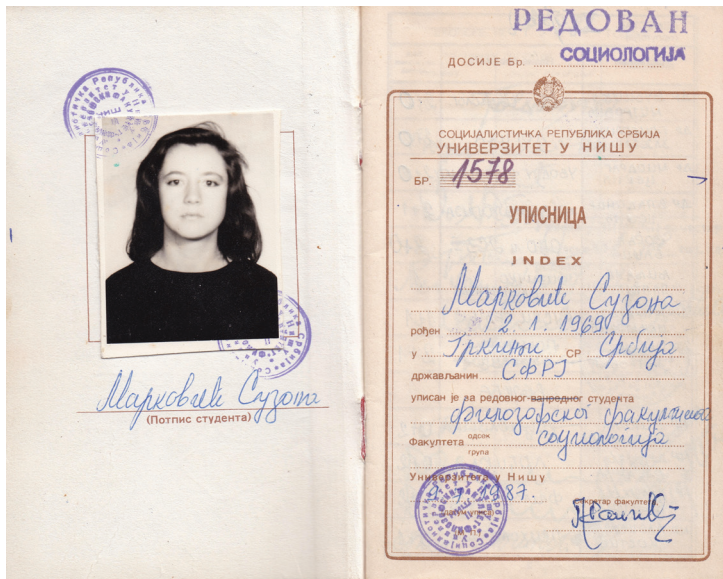 Марковић Сузана
(Потпис студента)
РЕДОВАН
ДОСИЈЕ Бр. СОЦИОЛОГИЈА
СОЦИЈАЛИСТИЧКА РЕПУБЛИКА СРБИЈА
УНИВЕРЗИТЕТ У НИШУ
БР. 1578
УПИСНИЦА
INDEX
Марковић Сузана
рођен 2.1.1969
у Гркињи СР Србија
држављанин СФРЈ
уписан је за редовног-ванредног студента
филозофског факултета
Факултета одсек социологија
група
Универзитета у Нишу
1987.
Секретар факултета,